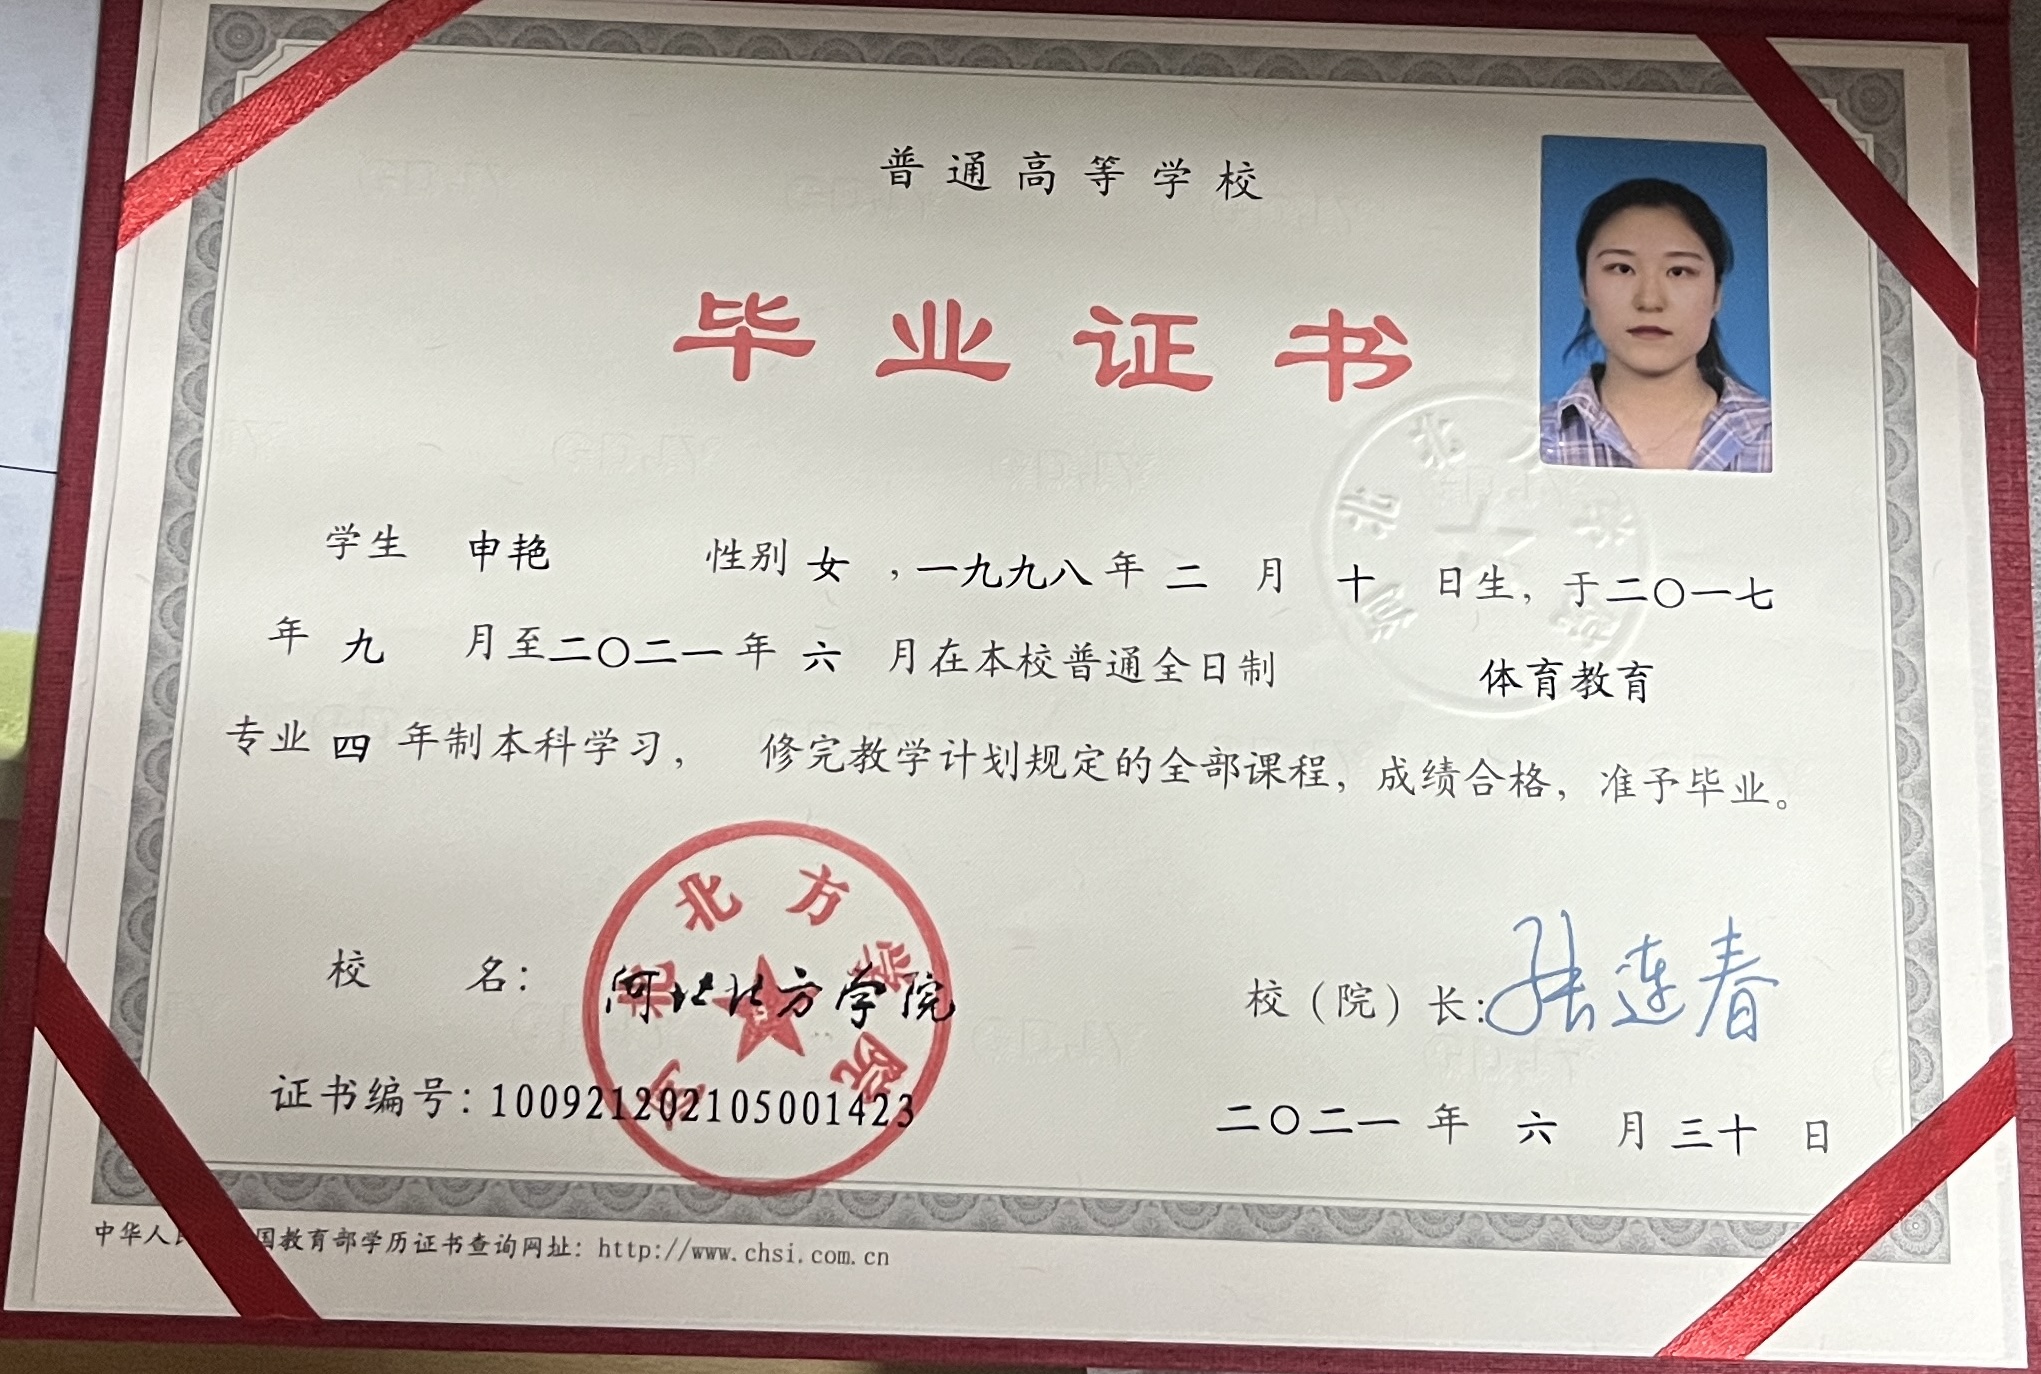 普通高等学校
毕业证书
学生 申艳 性别 女 ，一九九八年 二 月 十 日生，于二〇一七
年 九 月至二〇二一年 六 月在本校普通全日制 体育教育
专业 四 年制本科学习， 修完教学计划规定的全部课程，成绩合格，准予毕业。
河北北方学院
校 名： 河北北方学院
校（院）长：张连春
证书编号：100921202105001423
二〇二一 年 六 月 三十 日
中华人民 国教育部学历证书查询网址：http://www.chsi.com.cn